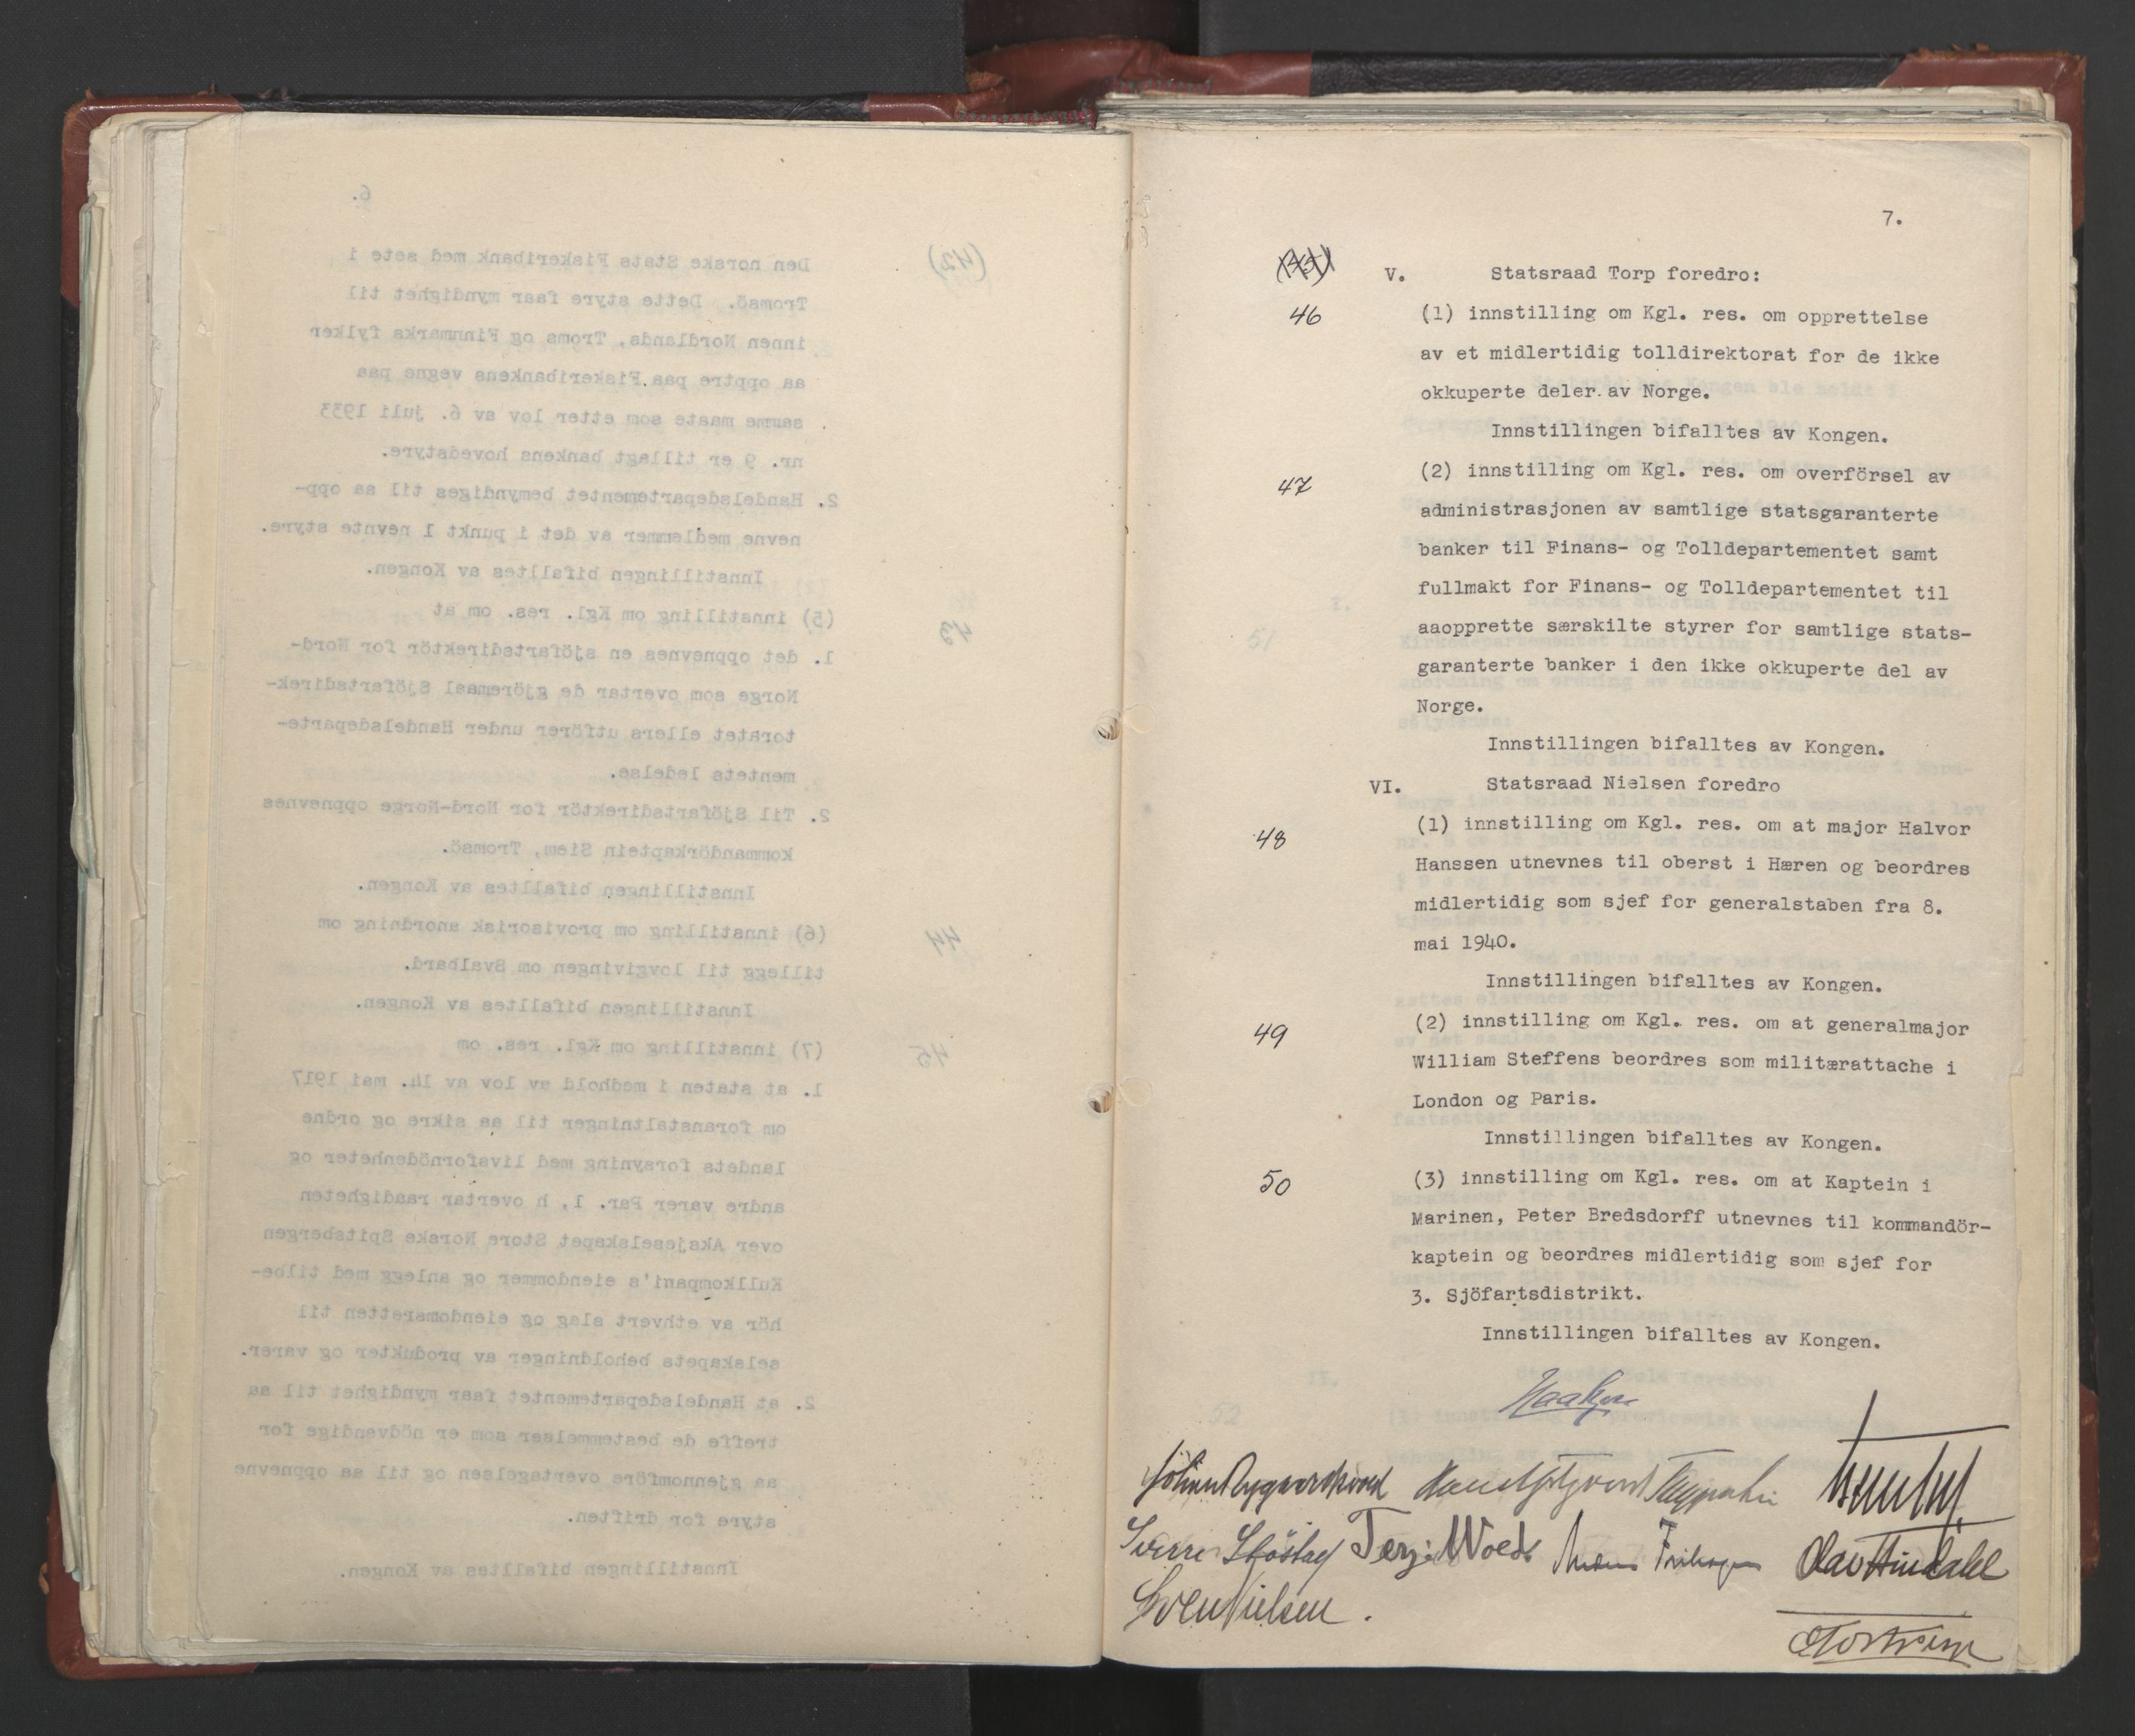 7.
V. Statsraad Torp foredro:
46 (1) innstilling om Kgl. res. om opprettelse
av et midlertidig tolldirektorat for de ikke
okkuperte deler av Norge.
Innstillingen bifalltes av Kongen.
47 (2) innstilling om Kgl. res. om overförsel av
administrasjonen av samtlige statsgaranterte
banker til Finans- og Tolldepartementet samt
fullmakt for Finans- og Tolldepartementet til
aaopprette særskilte styrer for samtlige stats-
garanterte banker i den ikke okkuperte del av
Norge.
Innstillingen bifalltes av Kongen.
VI. Statsraad Nielsen foredro
48 (1) innstilling om Kgl. res. om at major Halvor
Hanssen utnevnes til oberst i Hæren og beordres
midlertidig som sjef for generalstaben fra 8.
mai 1940.
Innstillingen bifalltes av Kongen.
49 (2) innstilling om Kgl. res. om at generalmajor
William Steffens beordres som militærattache i
London og Paris.
Innstillingen bifalltes av Kongen.
50 (3) innstilling om Kgl. res. om at Kaptein i
Marinen, Peter Bredsdorff utnevnes til kommandör-
kaptein og beordres midlertidig som sjef for
3. Sjöfartsdistrikt.
Innstillingen bifalltes av Kongen.
Haakon
Johan Nygaardsvold
Sverre Støstad Terje Wold Anders Frihagen Olav Hindahl
Sven Nielsen.
6.
Den norske Stats Fiskeribank med sete i
Tromsö. Dette styre faar myndighet til
innen Nordlands, Troms og Finnmarks fylker
aa opptre paa Fiskeribankens vegne paa
samme maate som etter lov av 6. juli 1933
nr. 9 er tillagt bankens hovedstyre.
2. Handelsdepartementet bemyndiges til aa opp-
nevne medlemmer av det i punkt 1 nevnte styre.
Innstillingen bifalltes av Kongen.
43 (5) innstilling om Kgl. res. om at
1. det oppnevnes en sjöfartsdirektör for Nord-
Norge som overtar de gjöremaal Sjöfartsdirek-
toratet ellers utförer under Handelsdeparte-
mentets ledelse.
2. Til Sjöfartsdirektör for Nord-Norge oppnevnes
kommandörkaptein Siem, Tromsö.
Innstillingen bifalltes av Kongen.
44 (6) innstilling om provisorisk anordning om
tillegg til lovgivingen om Svalbard.
Innstillingen bifalltes av Kongen.
45 (7) innstilling om Kgl. res. om
1. at staten i medhold av lov av 14. mai 1917
om foranstaltninger til aa sikre og ordne
landets forsyning med livsfornödenheter og
andre varer Par. 1, h overtar raadigheten
over Aksjeselskapet Store Norske Spitsbergen
Kullkompani's eiendommer og anlegg med tilbe-
hör av ethvert slag og eiendomsretten til
selskapets beholdninger av produkter og varer.
2. at Handelsdepartementet faar myndighet til aa
treffe de bestemmelser som er nödvendige for
aa gjennomföre overtagelsen og til aa oppnevne
styre for driften.
Innstillingen bifalltes av Kongen.